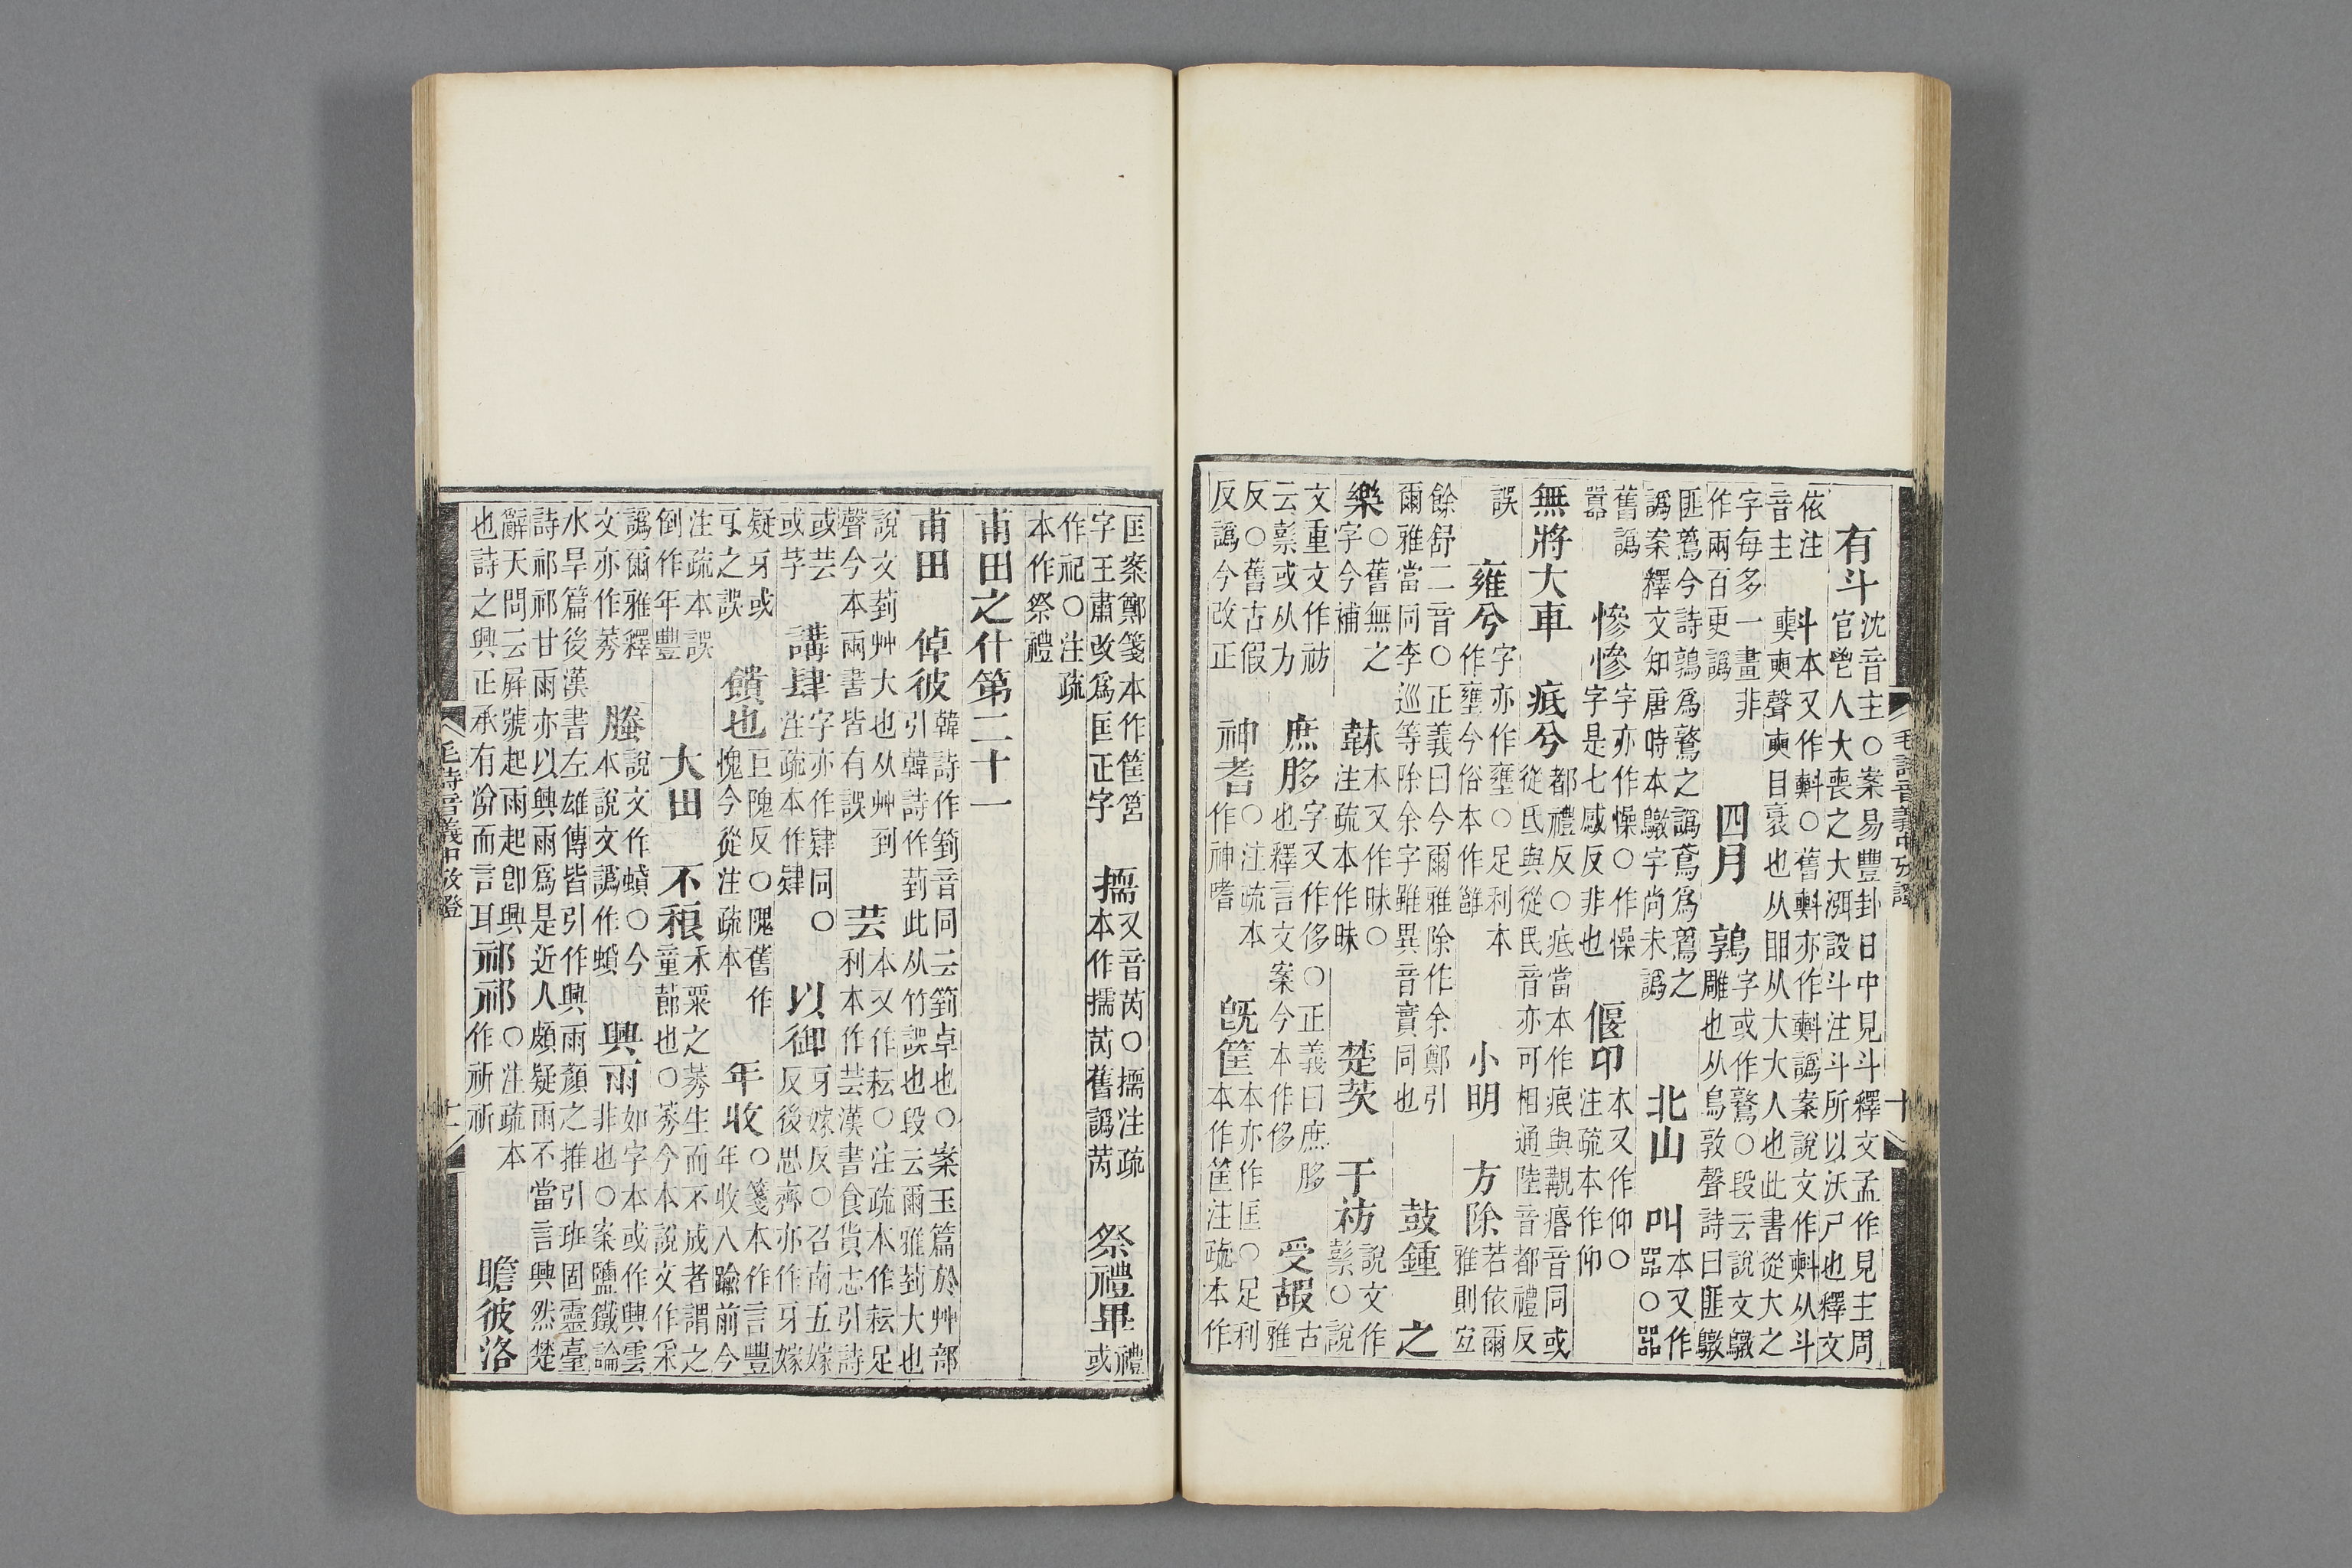 有斗沈音主○案易豐卦日中見斗釋文孟作見主周
官鬯人大喪之大渳設斗注斗所以沃尸也釋文
依注音主
斗本又作㪺○舊㪺亦作㪺譌案說文作㪺从斗
奭聲奭目衺也从䀠从大大人也此書從大之
字每多一畫非
作兩百更譌
四月
鶉字或作鷻○段云說文鷻
雕也从鳥敦聲詩曰匪鷻
匪鶉今詩鶉爲鷻之譌鳶爲之
譌案釋文知唐時本鷻字尚未譌
北山
叫本又作
嘂○嘂
舊譌
嚣
慘慘字亦作懆○作懆
字是七感反非也
偃卬本又作仰○
注疏本作仰
無將大車
疧兮都禮反○疧當本作痻與覯痻音同或
從氐與從民音亦可相通陸音都禮反
誤
雍兮字亦作壅○足利本
作壅今俗本作雝
小明
方除若依爾
雅則宜
餘舒二音○正義曰今爾雅除作余鄭引
爾雅當同李巡等除余字雖異音實同也
鼓鍾
之
樂○舊無之
字今補
韎本又作昧○
注疏本作昧
楚茨
于祊說文作
䰜○說
文重文作祊
云䰜或从方
庶胗字又作侈○正義曰庶胗
也釋言文案今本作侈
受嘏古
雅
反○舊古假
反譌今改正
神耆○注疏本
作神嗜
旣筐本亦作匡○足利
本作筐注疏本作
匡案鄭箋本作筐筥
字王肅改爲匡正字
擩又音芮○擩注疏
本作擩芮舊譌芮
祭禮畢禮
或
作祀○注疏
本作祭禮
甫田之什第二十一
甫田
倬彼韓詩作箌音同云箌卓也○案玉篇於艸部
引韓詩作菿此从竹誤也段云爾雅菿大也
說文菿艸大也从艸到
聲今本兩書皆有誤
芸本又作耘○注疏本作耘足
利本作芸漢書食貨志引詩
或芸
或芓
講肆字亦作肄同○
注疏本作肄
以御牙嫁反○召南五嫁
反後思齊亦作牙嫁
疑牙或
㸦之誤
饋也巨隗反○隗舊作
愧今從注疏本
年收○箋本作言豐
年收入踰前今
注疏本誤
倒作年豐
大田
不稂禾粟之莠生而不成者謂之
童蓈也○莠今本說文作采
譌爾雅釋
文亦作莠
螣說文作蟘○今
本說文譌作蟘
興雨如字本或作興雲
非也○案鹽鐵論
水旱篇後漢書左雄傳皆引作興雨顏之推引班固靈臺
詩祁祁甘雨亦以興雨爲是近人頗疑雨不當言興然楚
辭天問云蓱號起雨起卽興
也詩之興正承有渰而言耳
祁祁○注疏本
作祈祈
瞻彼洛
毛詩音義中攷證
十
毛詩音義中攷證
十一